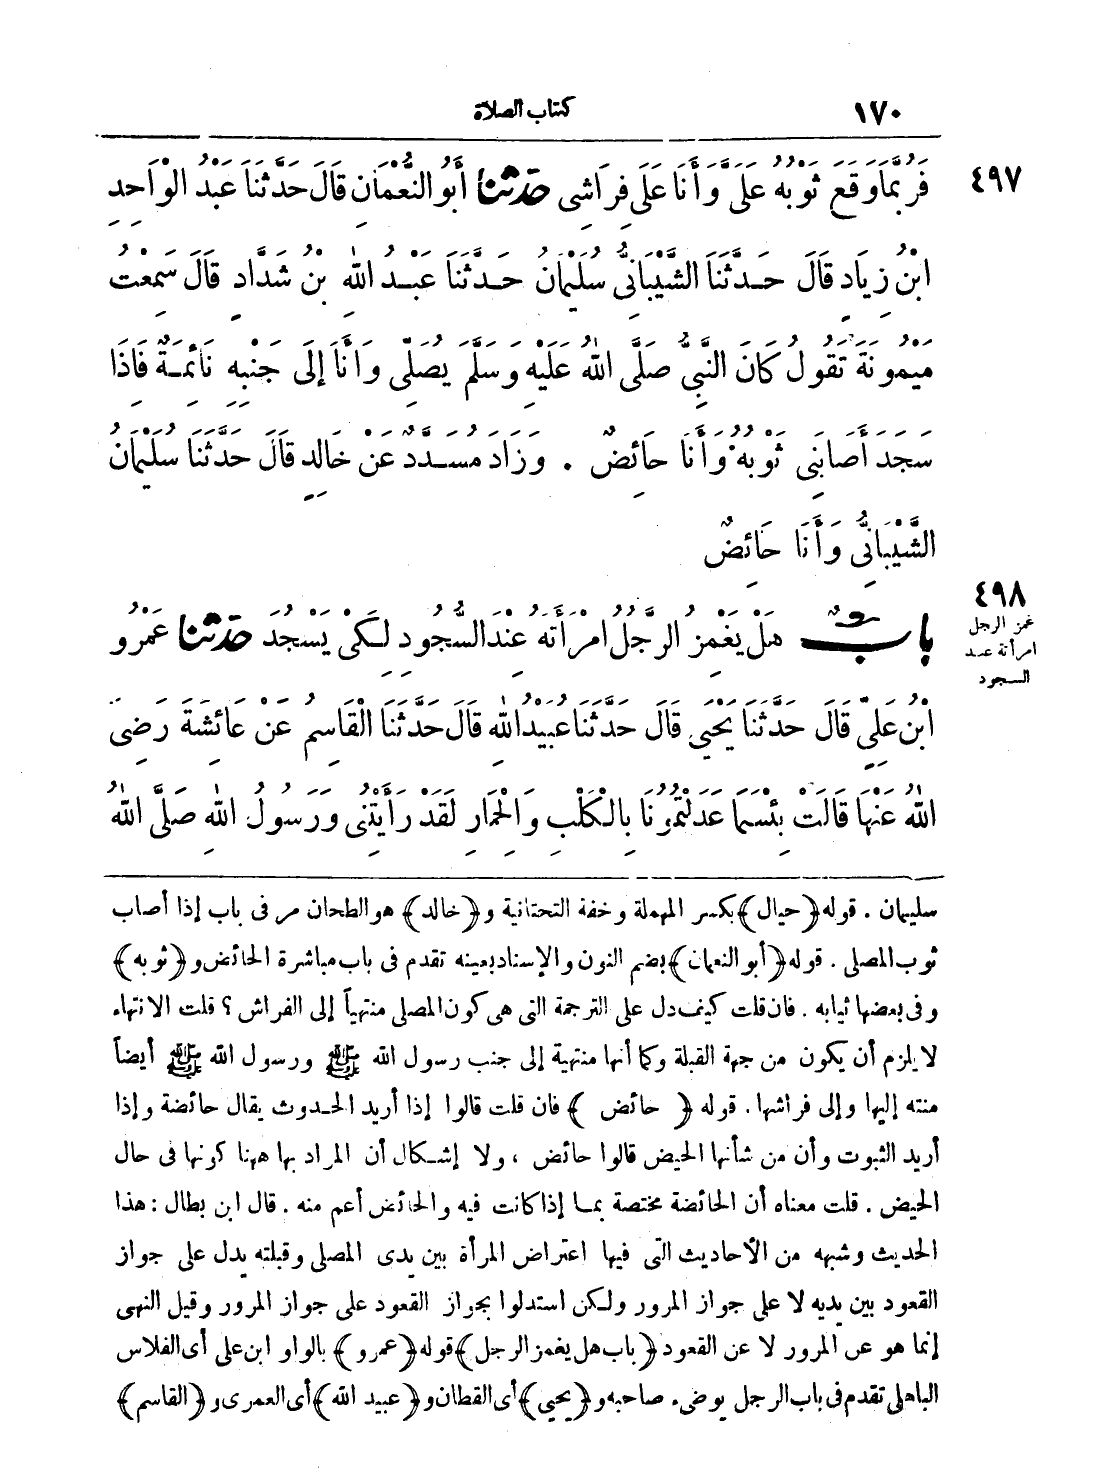 ١٧٠ كتاب الصلاة
٤٩٧
فَرُبَّمَا وَقَعَ ثَوْبُهُ عَلَىَّ وَأَنَا عَلَى فِرَاشِى حَدَّثَنَا أَبُو النُّعْمَانِ قَالَ حَدَّثَنَا عَبْدُ الْوَاحِدِ
ابْنُ زِيَادٍ قَالَ حَدَّثَنَا الشَّيْبَانِىُّ سُلَيْمَانُ حَدَّثَنَا عَبْدُ اللهِ بْنُ شَدَّادٍ قَالَ سَمِعْتُ
مَيْمُونَةَ تَقُولُ كَانَ النَّبِىُّ صَلَّى اللهُ عَلَيْهِ وَسَلَّمَ يُصَلِّى وَأَنَا إِلَى جَنْبِهِ نَائِمَةٌ فَاِذَا
سَجَدَ أَصَابَنِى ثَوْبُهُ وَأَنَا حَائِضٌ . وَزَادَ مُسَدَّدٌ عَنْ خَالِدٍ قَالَ حَدَّثَنَا سُلَيْمَانُ
الشَّيْبَانِىُّ وَأَنَا حَائِضٌ
٤٩٨
غمز الرجل
امرأته عند
السجود
بابٌ هَلْ يَغْمِزُ الرَّجُلُ امْرَأَتَهُ عِنْدَ السُّجُودِ لِكَىْ يَسْجُدَ حَدَّثَنَا عَمْرُو
ابْنُ عَلِىٍّ قَالَ حَدَّثَنَا يَحْيَى قَالَ حَدَّثَنَا عُبَيْدُ اللهِ قَالَ حَدَّثَنَا الْقَاسِمُ عَنْ عَائِشَةَ رَضِىَ
اللهُ عَنْهَا قَالَتْ بِئْسَمَا عَدَلْتُمُونَا بِالْكَلْبِ وَالْحِمَارِ لَقَدْ رَأَيْتُنِى وَرَسُولُ اللهِ صَلَّى اللهُ
سليمان . قوله ﴿حيال﴾ بكسر المهملة وخفة التحتانية و﴿خالد﴾ هو الطحان مر فى باب إذا أصاب
ثوب المصلى . قوله ﴿أبو النعمان﴾ بضم النون والإسناد بعينه تقدم فى باب مباشرة الحائض و﴿ثوبه﴾
وفى بعضها ثيابه . فان قلت كيف دل على الترجمة التى هى كون المصلى منتهياً إلى الفراش ؟ قلت الانتهاء
لا يلزم أن يكون من جهة القبلة وكما أنها منتهية إلى جنب رسول الله ﷺ ورسول الله ﷺ أيضاً
منته إليها وإلى فراشها . قوله ﴿ حائض ﴾ فان قلت قالوا إذا أريد الحدوث يقال حائضة وإذا
أريد الثبوت وأن من شأنها الحيض قالوا حائض ، ولا إشكال أن المراد بها ههنا كونها فى حال
الحيض . قلت معناه أن الحائضة مختصة بما إذا كانت فيه والحائض أعم منه . قال ابن بطال : هذا
الحديث وشبهه من الأحاديث التى فيها اعتراض المرأة بين يدى المصلى وقبلته يدل على جواز
القعود بين يديه لا على جواز المرور ولكن استدلوا بجواز القعود على جواز المرور وقيل النهى
إنما هو عن المرور لا عن القعود ﴿باب هل يغمز الرجل﴾ قوله ﴿عمرو﴾ بالواو ابن على أى الفلاس
الباهلى تقدم فى باب الرجل يوضىء صاحبه و﴿يحيى﴾ أى القطان و﴿عبيد الله﴾ أى العمرى و﴿القاسم﴾